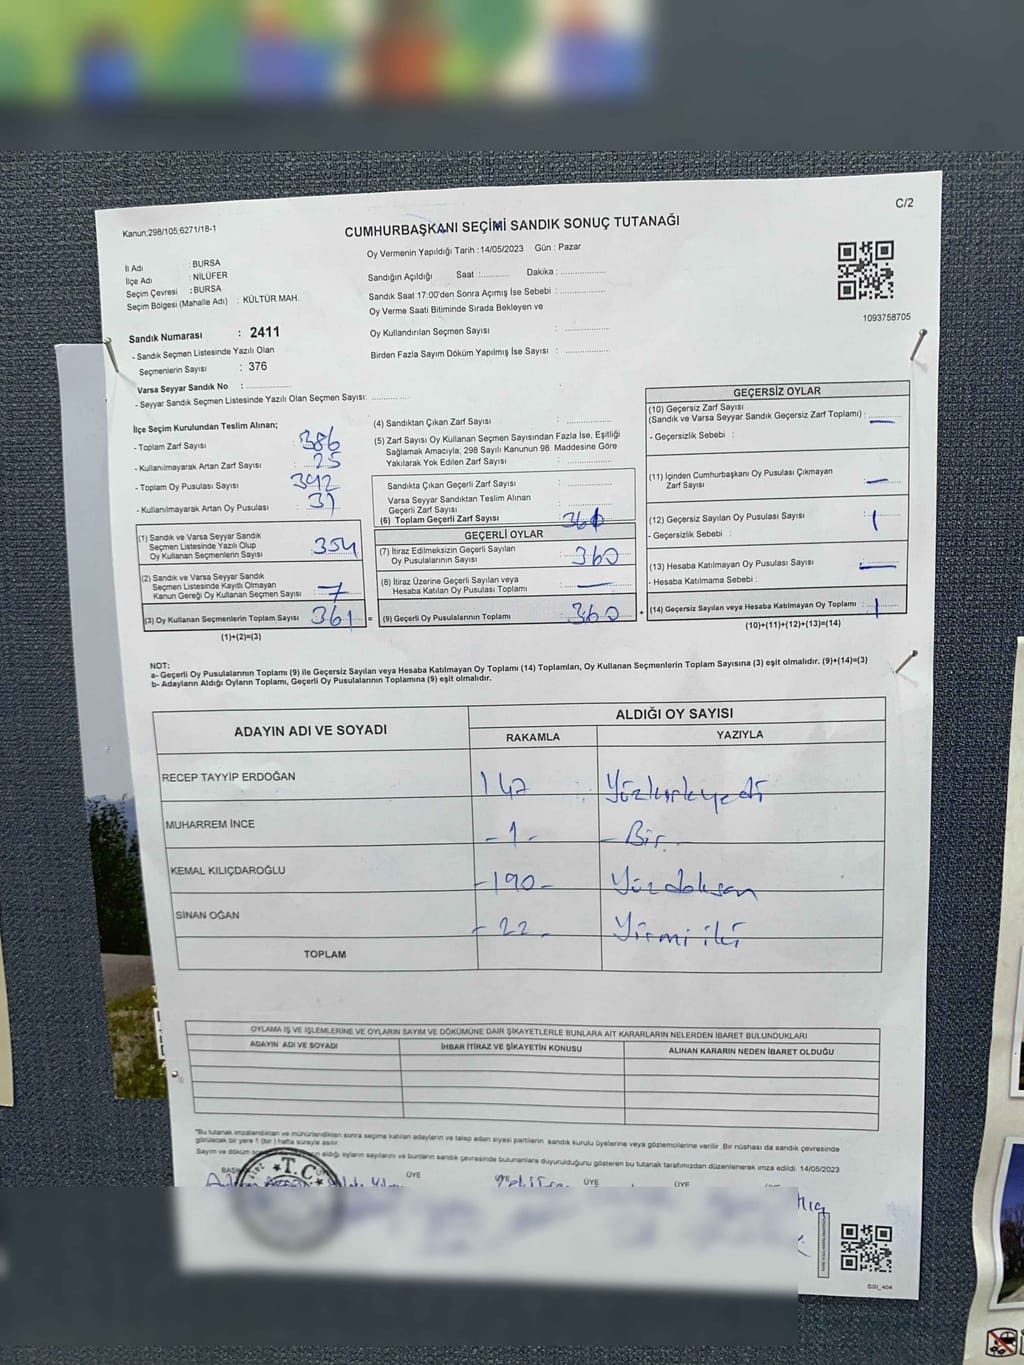 C/2
Kanun;298/105;6271/18-1
CUMHURBAŞKANI SEÇİMİ SANDIK SONUÇ TUTANAĞI
Oy Vermenin Yapıldığı Tarih : 14/05/2023 Gün : Pazar
İl Adı : BURSA
İlçe Adı : NİLÜFER
Seçim Çevresi : BURSA
Seçim Bölgesi (Mahalle Adı) : KÜLTÜR MAH.
Sandığın Açıldığı Saat :........... Dakika : ................
Sandık Saat 17:00'den Sonra Açılmış İse Sebebi : ................
Oy Verme Saati Bitiminde Sırada Bekleyen ve
Oy Kullandırılan Seçmen Sayısı : ................
Birden Fazla Sayım Döküm Yapılmış İse Sayısı : ................
1093758705
Sandık Numarası : 2411
- Sandık Seçmen Listesinde Yazılı Olan
Seçmenlerin Sayısı : 376
Varsa Seyyar Sandık No : ................
- Seyyar Sandık Seçmen Listesinde Yazılı Olan Seçmen Sayısı: ..............
İlçe Seçim Kurulundan Teslim Alınan;
- Toplam Zarf Sayısı : 386
- Kullanılmayarak Artan Zarf Sayısı : 25
- Toplam Oy Pusulası Sayısı : 392
- Kullanılmayarak Artan Oy Pusulası : 31
(1) Sandık ve Varsa Seyyar Sandık
Seçmen Listesinde Yazılı Olup
Oy Kullanan Seçmenlerin Sayısı : 354
(2) Sandık ve Varsa Seyyar Sandık
Seçmen Listesinde Kayıtlı Olmayan
Kanun Gereği Oy Kullanan Seçmen Sayısı : 7
(3) Oy Kullanan Seçmenlerin Toplam Sayısı : 361 =
(1)+(2)=(3)
(4) Sandıktan Çıkan Zarf Sayısı : ................
(5) Zarf Sayısı Oy Kullanan Seçmen Sayısından Fazla İse, Eşitliği
Sağlamak Amacıyla; 298 Sayılı Kanunun 98. Maddesine Göre
Yakılarak Yok Edilen Zarf Sayısı : ................
Sandıkta Çıkan Geçerli Zarf Sayısı : ................
Varsa Seyyar Sandıktan Teslim Alınan
Geçerli Zarf Sayısı : ................
(6) Toplam Geçerli Zarf Sayısı : 360
GEÇERLİ OYLAR
(7) İtiraz Edilmeksizin Geçerli Sayılan
Oy Pusulalarının Sayısı : 360
(8) İtiraz Üzerine Geçerli Sayılan veya
Hesaba Katılan Oy Pusulası Toplamı : —
(9) Geçerli Oy Pusulalarının Toplamı : 360 +
GEÇERSİZ OYLAR
(10) Geçersiz Zarf Sayısı
(Sandık ve Varsa Seyyar Sandık Geçersiz Zarf Toplamı) : —
- Geçersizlik Sebebi :
(11) İçinden Cumhurbaşkanı Oy Pusulası Çıkmayan
Zarf Sayısı : —
(12) Geçersiz Sayılan Oy Pusulası Sayısı : 1
- Geçersizlik Sebebi :
(13) Hesaba Katılmayan Oy Pusulası Sayısı : —
- Hesaba Katılmama Sebebi :
(14) Geçersiz Sayılan veya Hesaba Katılmayan Oy Toplamı : 1
(10)+(11)+(12)+(13)=(14)
NOT:
a- Geçerli Oy Pusulalarının Toplamı (9) ile Geçersiz Sayılan veya Hesaba Katılmayan Oy Toplamı (14) Toplamları, Oy Kullanan Seçmenlerin Toplam Sayısına (3) eşit olmalıdır. (9)+(14)=(3)
b- Adayların Aldığı Oyların Toplamı, Geçerli Oy Pusulalarının Toplamına (9) eşit olmalıdır.
ADAYIN ADI VE SOYADI ALDIĞI OY SAYISI
RAKAMLA YAZIYLA
RECEP TAYYİP ERDOĞAN 147 Yüzkırkyedi
MUHARREM İNCE - 1 - - Bir. -
KEMAL KILIÇDAROĞLU - 190 - Yüzdoksan
SİNAN OĞAN - 22 - Yirmi iki
TOPLAM
OYLAMA İŞ VE İŞLEMLERİNE VE OYLARIN SAYIM VE DÖKÜMÜNE DAİR ŞİKAYETLERLE BUNLARA AİT KARARLARIN NELERDEN İBARET BULUNDUKLARI
ADAYIN ADI VE SOYADI İHBAR İTİRAZ VE ŞİKAYETİN KONUSU ALINAN KARARIN NEDEN İBARET OLDUĞU
*Bu tutanak imzalandıktan ve mühürlendikten sonra seçime katılan adayların ve talep eden siyasi partilerin sandık kurulu üyelerine veya gözlemcilerine verilir. Bir nüshası da sandık çevresinde
görülecek bir yere 1 (bir) hafta süreyle asılır.
Sayım ve döküm aldığı oyların sayılarını ve bunların sandık çevresinde bulunanlara duyurulduğunu gösteren bu tutanak tarafımızdan düzenlenerek imza edildi. 14/05/2023
T.C.
ÜYE ÜYE ÜYE ÜYE